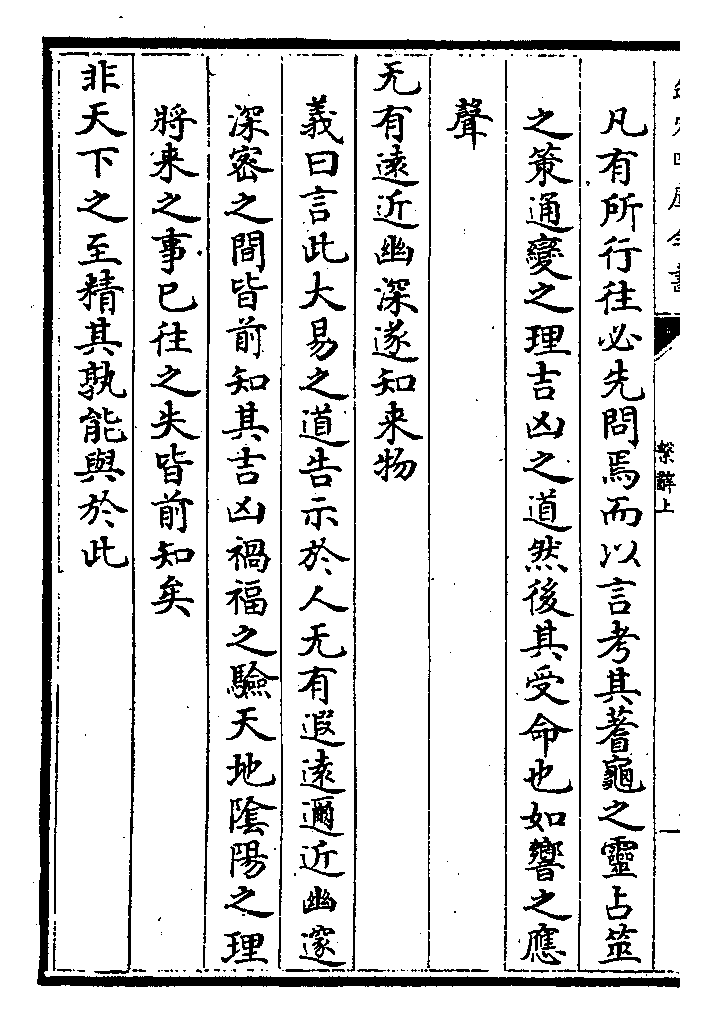 繫辭上
凡有所行往必先問焉而以言考其蓍龜之靈占筮
之策通變之理吉凶之道然後其受命也如響之應
聲
无有遠近幽深遂知来物
義曰言此大易之道告示於人无有遐遠邇近幽邃
深密之間皆前知其吉凶禍福之驗天地隂陽之理
將来之事已往之失皆前知矣
非天下之至精其孰能與於此